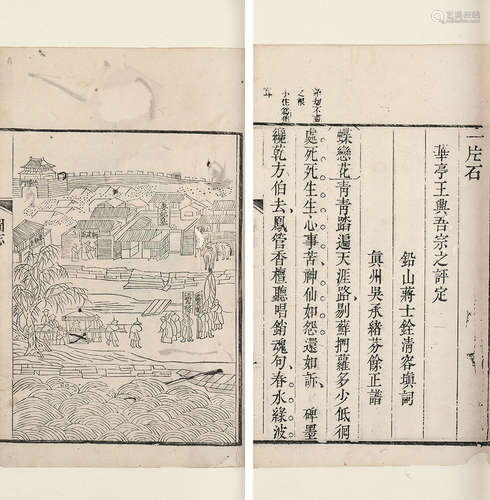 一片石
華亭王興吾宗之評定
鉛山蔣士銓清容填詞
眞州吳承緒芬餘正譜
蝶戀花青青踏遍天涯路剔蘚捫蘿多少低徊
處死死生生心事苦神仙如怨還如訴 碑墨
纔乾方伯去鳳管香檀聽唱銷魂句春水綠波
小住爲佳
耳